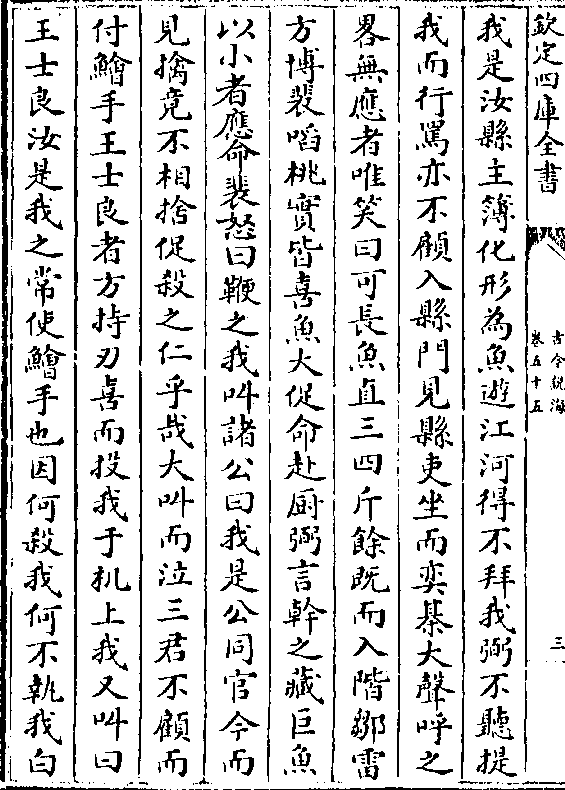 欽定四庫全書
古今說海
卷五十五
三
我是汝縣主簿化形為魚遊江河得不拜我弼不聽提
我而行罵亦不顧入縣門見縣吏坐而奕棊大聲呼之
畧無應者唯笑曰可長魚直三四斤餘既而入階鄒雷
方博裴啗桃實皆喜魚大促命赴厨弼言幹之藏巨魚
以小者應命裴怒曰鞭之我叫諸公曰我是公同官今而
見擒竟不相捨促殺之仁乎哉大叫而泣三君不顧而
付鱠手王士良者方持刃喜而投我于机上我又叫曰
王士良汝是我之常使鱠手也因何殺我何不執我白